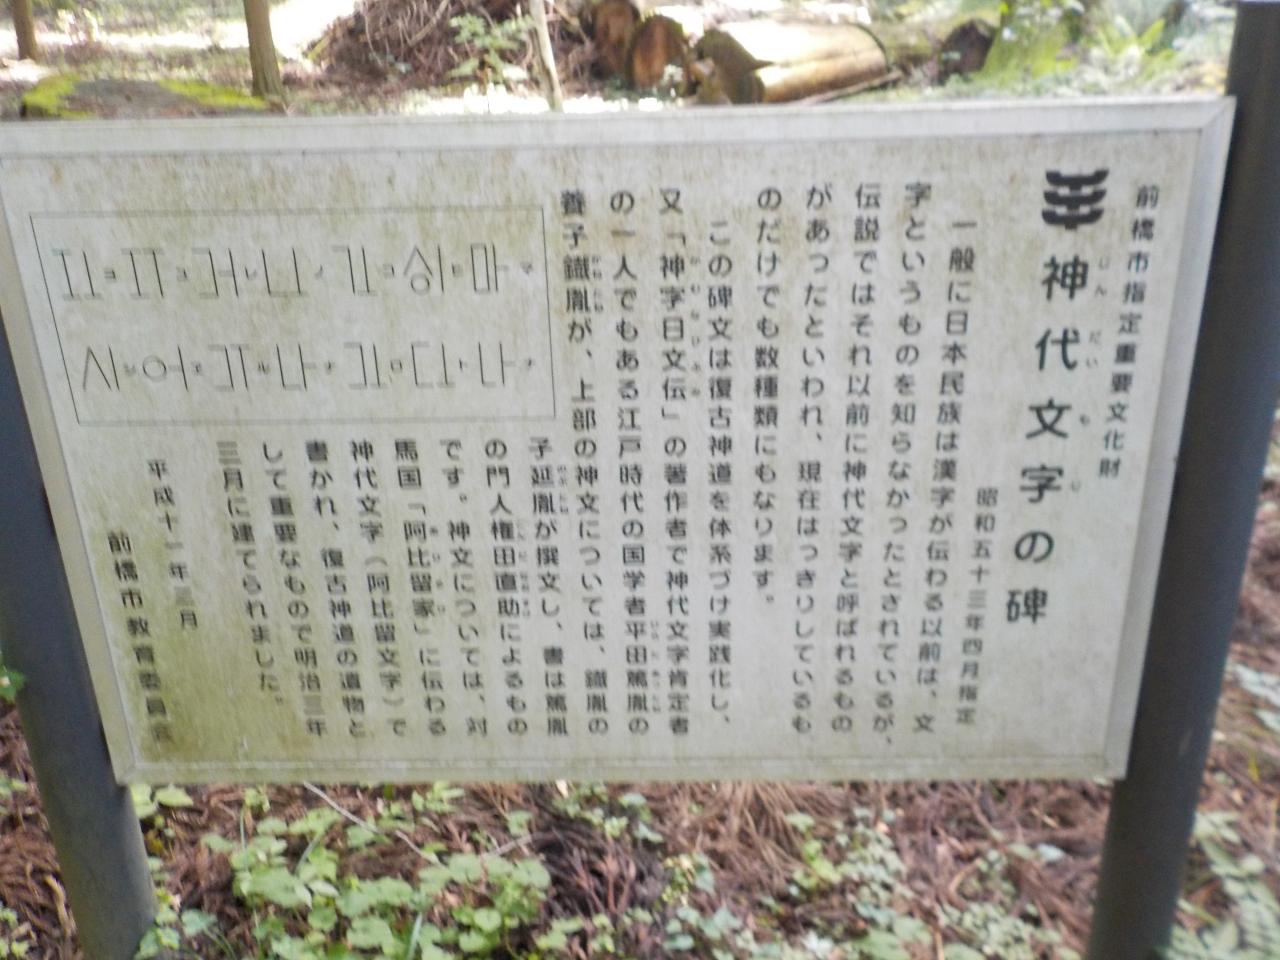 前橋市指定重要文化財
神代文字の碑
じんだいもじ
昭和五十三年四月指定
一般に日本民族は漢字が伝わる以前は、文
字というものを知らなかったとされているが、
伝説ではそれ以前に神代文字と呼ばれるもの
があったといわれ、現在はっきりしているも
のだけでも数種類にもなります。
この碑文は復古神道を体系づけ実践化し、
又「神字日文伝」の著作者で神代文字肯定者
の一人でもある江戸時代の国学者平田篤胤の
養子鐵胤が、上部の神文については、鐵胤の
子延胤が撰文し、書は篤胤
の門人権田直助によるもの
です。神文については、対
馬国「阿比留家」に伝わる
神代文字（阿比留文字）で
書かれ、復古神道の遺物と
して重要なもので明治三年
三月に建てられました。
平成十一年三月
前橋市教育委員会